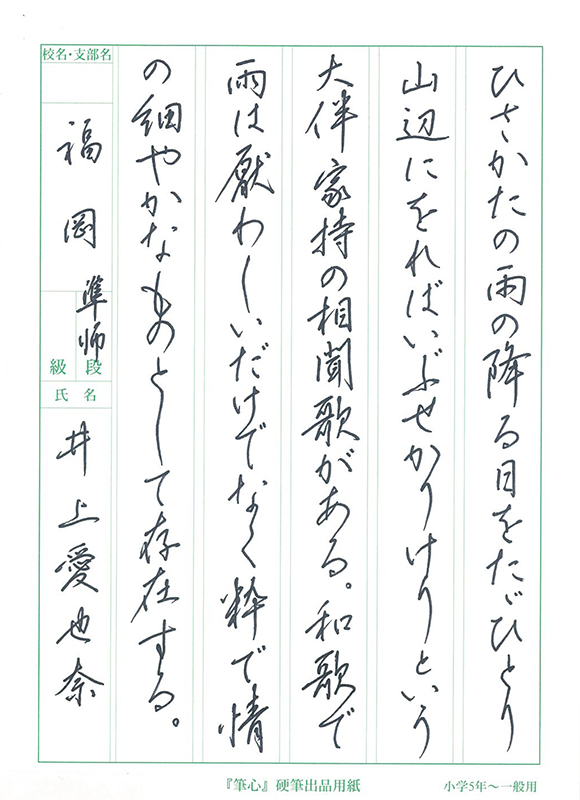 ひさかたの雨の降る日をたゞひとり
山辺にをればいぶせかりけりという
大伴家持の相聞歌がある。和歌で
雨は厭わしいだけでなく粋で情
の細やかなものとして存在する。
校名・支部名
福岡
準師
段級
氏名
井上愛也奈
『筆心』硬筆出品用紙
小学5年～一般用